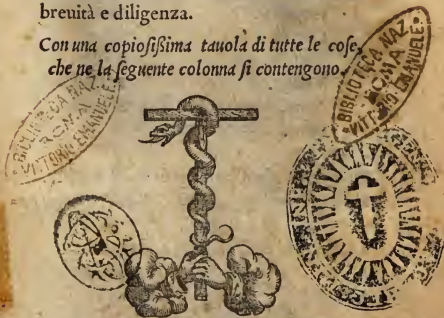 breuità e diligenza.
Con una copiosißima tauola di tutte le cose,
che ne la seguente colonna si contengono.
BIBLIOTECA NAZ
ROMA
VITTORIO EMANUELE
BIBLIOTECA NAZ
ROMA
VITTORIO EMANUELE